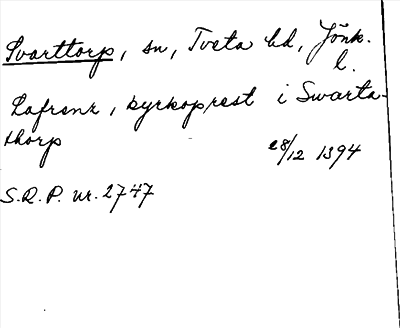 Svarttorp, sn, Tveta hd, Jönk.
l.
Lafrenz, kyrkoprest i Swarta-
thorp
28/12 1394
S.R.P. nr. 2747